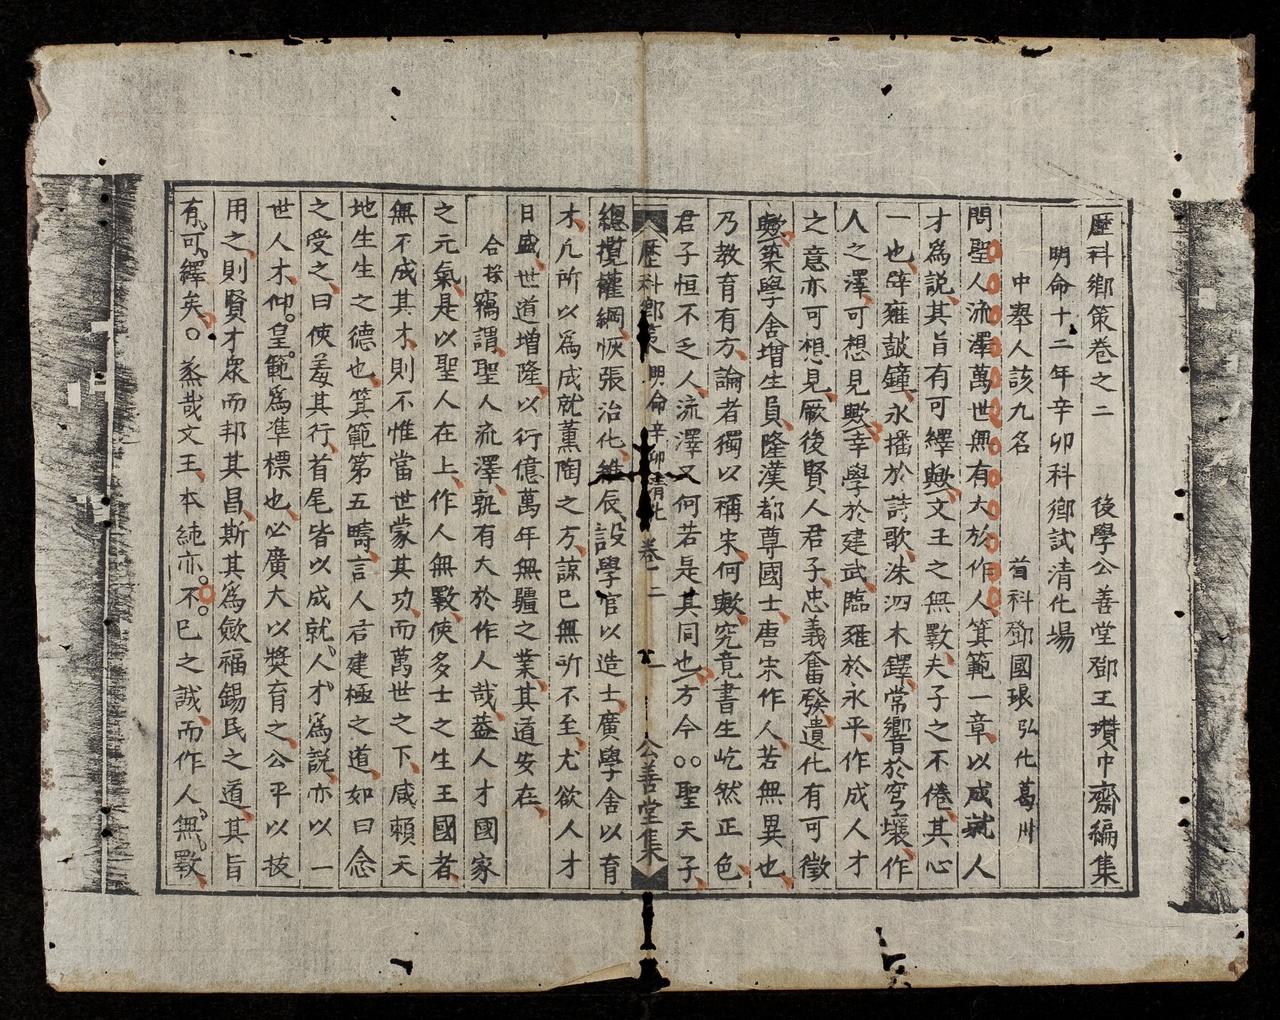 歷科鄉策卷之二　後學公善堂鄧王瓚巾齋編集
明命十二年辛卯科鄉試清化場
中舉人該九名　首科鄧國琅弘化葛川
問聖人流澤萬世無有大於作人箕範一章以成就人
才爲説其旨有可繹歟文王之無斁夫子之不倦其心
一也辟雍鼓鐘永播於詩歌洙泗木鐸常響於穹壤作
人之澤可想見歟幸學於建武臨雍於永平作成人才
之意亦可想見厥後賢人君子忠義奮發遺化有可徵
歟築學舍增生員隆漢都尊國士唐宋作人若無異也
乃教育有方論者獨以稱宋何歟究竟書生屹然正色
君子恒不乏人流澤又何若是其同也方今〇〇聖天子
歷科鄉策　明命辛卯清化　卷二　一　公善堂集
總攬權綱恢張治化維辰設學官以造士廣學舍以育
才凡所以爲成就薰陶之方諒已無所不至尤欲人才
日盛世道增隆以行億萬年無疆之業其道安在
合採竊謂聖人流澤孰有大於作人哉葢人才國家
之元氣是以聖人在上作人無斁使多士之生王國者
無不成其才則不惟當世蒙其功而萬世之下咸賴天
地生生之德也箕範第五疇言人君建極之道如曰念
之受之曰使羞其行首尾皆以成就人才爲説亦以一
世人才仰皇範爲準標也必廣大以奬育之公平以拔
用之則賢才衆而邦其昌斯其爲斂福錫民之道其旨
有可繹矣〇蒸哉文王本純亦不已之誠而作人無斁